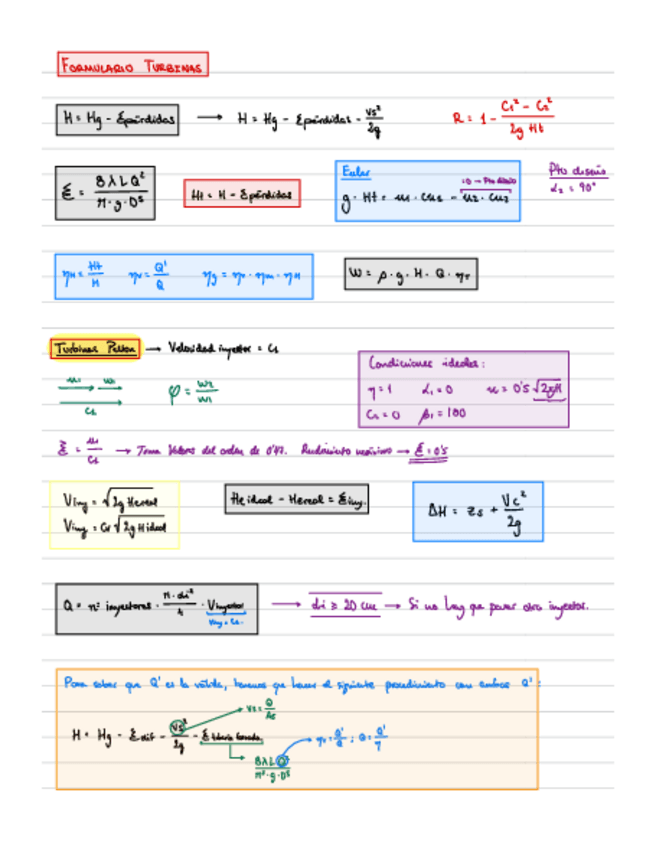 FORMULARIO TURBINAS
H = Hg - Σpérdidas → H = Hg - Σpérdidas - Vs²/2g
R = 1 - (C1² - C2²)/(2g Ht)
Σ = 8λLQ²/(π·g·D⁵)
Ht = H - Σpérdidas
Euler
g·Ht = u1·Cu1 - u2·Cu2
=0 → Pto diseño
Pto diseño
α2 = 90°
ηH = Ht/H ηv = Q'/Q ηg = ηv·ηm·ηH
W = ρ·g·H·Q·ητ
Turbinas Pelton → Velocidad inyector = C1
u1 w1
C1
φ = w2/w1
Condiciones ideales:
η=1 α1=0 u = 0'5 √2gH
C2=0 β1=180
ξ = u1/C1 → Toma valores del orden de 0'47. Rendimiento máximo → ξ=0'5
Viny = √2g Hereal
Viny = Cv √2g Hideal
He ideal - Hereal = Σiny.
ΔH = zs + Vc²/2g
Q = nº inyectores · π·di²/4 · Vinyector
Viny = C1.
→ di ≥ 20 cm → Si no hay que poner otro inyector.
Para saber que Q' es la válida, tenemos que hacer el siguiente procedimiento con ambas Q':
Vs = Q/As
H = Hg - Σdif - Vs²/2g - Σtubería forzada
ηv = Q'/Q ; Q = Q'/η
8λLQ²/(π²·g·D⁵)